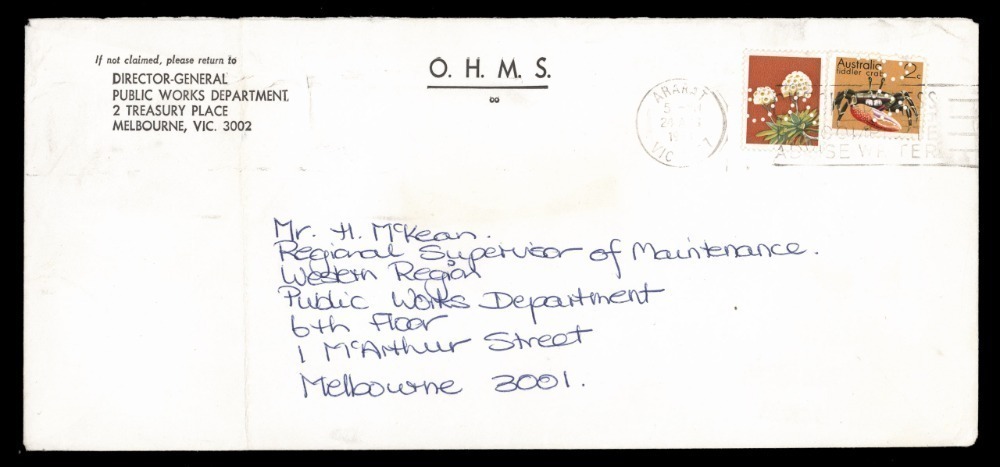 If not claimed, please return to
DIRECTOR-GENERAL
PUBLIC WORKS DEPARTMENT.
2 TREASURY PLACE
MELBOURNE, VIC. 3002
O. H. M. S.
ARARAT
VIC
Australia
fiddler crab
2c
Mr. H. McKean.
Regional Supervisor of Maintenance.
Western Region
Public Works Department
6th Floor
1 McArthur Street
Melbourne 3001.